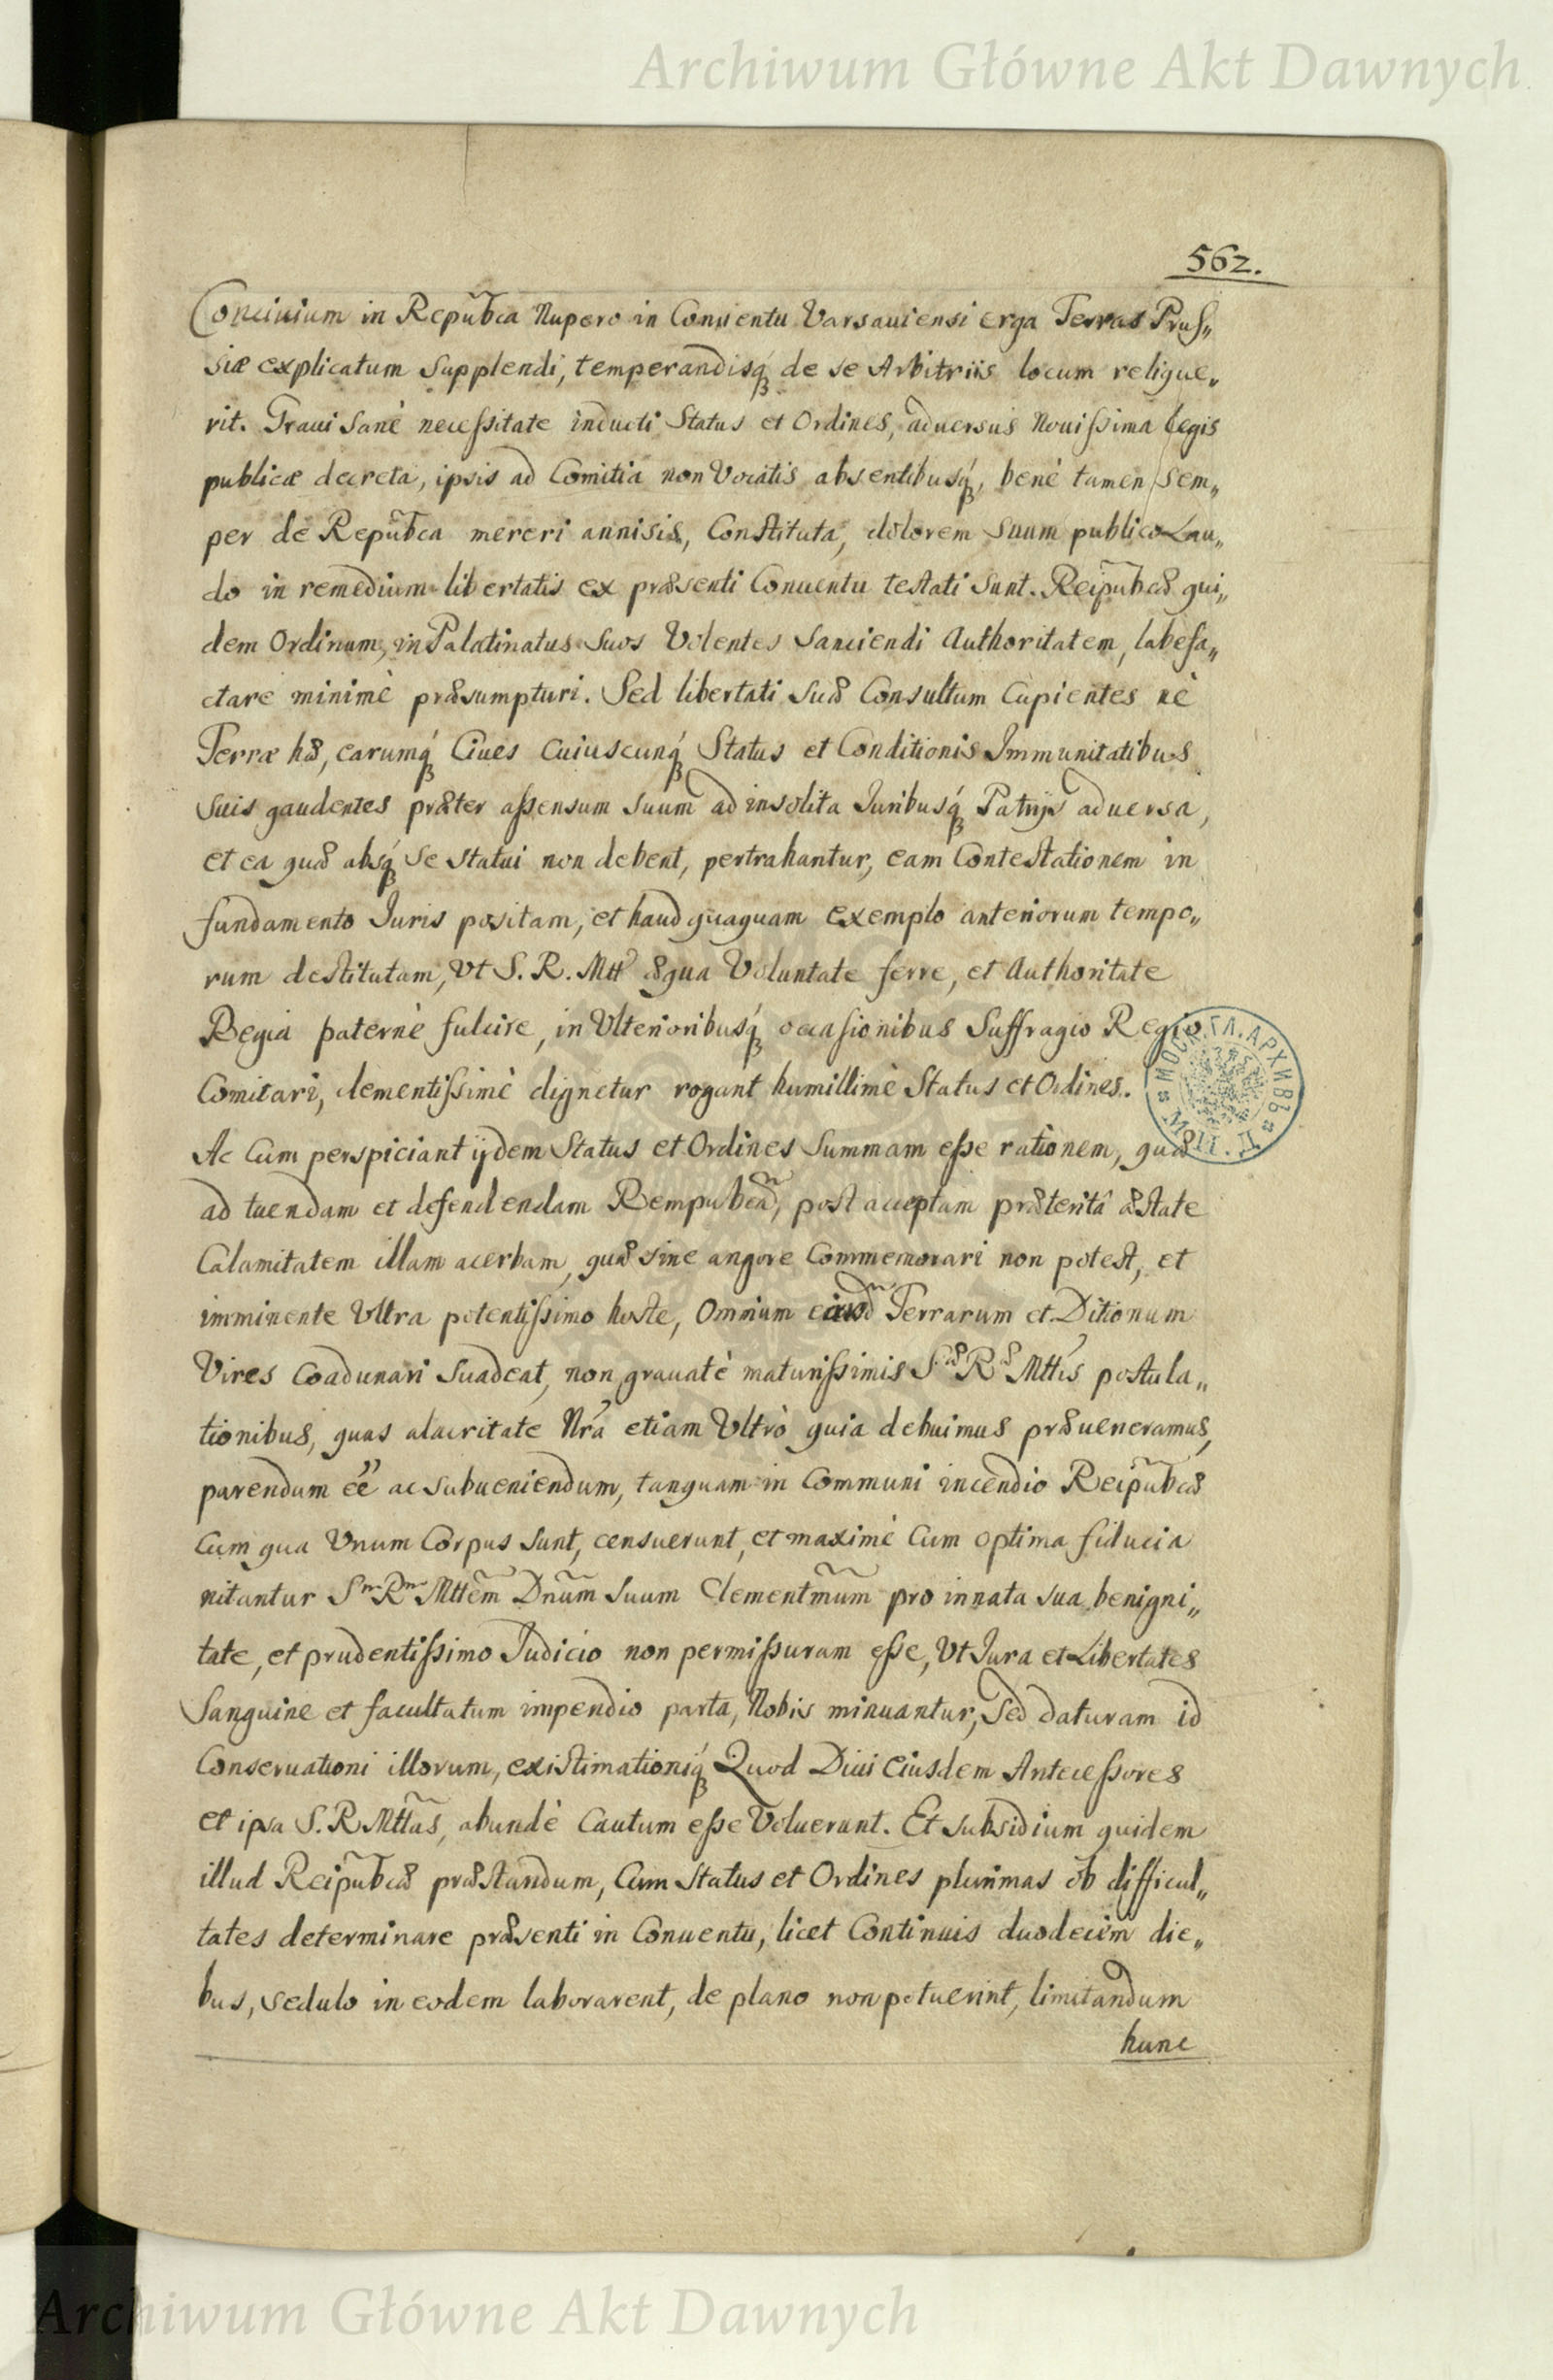 Archiwum Główne Akt Dawnych
562.
Conciuium in Repub̃ca Nupero in Conuentu Varsauiensi erga Terras Prus„
siæ explicatum supplendi, temperandisq́ de se Arbitriis locum relique„
rit. Graui sanè necessitate inducti Status et Ordines, aduersus Nouissima Legis
publicæ decreta, ipsis ad Comitia non Vocatis absentibusq́, benè tamen sem„
per de Repub̃ca mereri annisis, Constituta, dolorem suum publico Lau„
do in remedium libertatis ex præsenti Conuentu testati sunt. Reipub̃cæ qui„
dem Ordinum, in Palatinatus suos Volentes Sanciendi Authoritatem, labefa„
ctare minimè præsumpturi. Sed libertati suæ Consultum Cupientes nè
Terræ hæ, earumq́ Ciues Cuiuscunq́ Status et Conditionis Immunitatibus
suis gaudentes præter assensum suum ad insolita Juribusq́ Patrijs aduersa,
et ea quæ absq́ se statui non debent, pertrahantur, eam Contestationem in
fundamento Juris positam, et haud quaquam exemplo anteriorum tempo„
rum destitutam, Vt S. R. Mtt æqua Voluntate ferre, et Authoritate
Regia paternè fulcire, in Vlterioribusq́ occasionibus Suffragio Regio
Comitari, clementissimè dignetur rogant humillimè Status et Ordines.
Ac Cum perspiciant ijdem Status et Ordines Summam esse rationem, quæ
ad tuendam et defendendam Rempubcãm, post acceptam præteritâ æstate
Calamitatem illam acerbam, quæ sine angore Commemorari non potest, et
imminente Vltra potentissimo hoste, Omnium eiusdm Terrarum et Ditionum
Vires Coadunari Suadeat, non grauatè maturissimis Sæ Ræ Mttis postula„
tionibus, quas alacritate Nrã etiam Vltrò quia debuimus præueneramus,
parendum eẽ ac subueniendum, tanquam in Communi incendio Reipub̃cæ
Cum qua Vnum Corpus sunt, censuerunt, et maximè Cum optima fiducia
nitantur Sm Rm Mttẽm Dnũm suum Clementm̃um pro innata sua benigni„
tate, et prudentissimo Judicio non permissuram esse, Vt Jura et Libertates
Sanguine et facultatum impendio parta, Nobis minuantur, sed daturam id
Conseruationi illorum, existimationiq́ Quod Diui Eiusdem Antecessores
et ipsa S. R Mttãs, abundè Cautum esse Voluerunt. Et subsidium quidem
illud Reipub̃cæ præstandum, Cum Status et Ordines plurimas ob difficul„
tates determinare præsenti in Conuentu, licet Continuis duodecim die„
bus, sedulo in eodem laborarent, de plano non potuerint, limitandum
hunc
Archiwum Główne Akt Dawnych